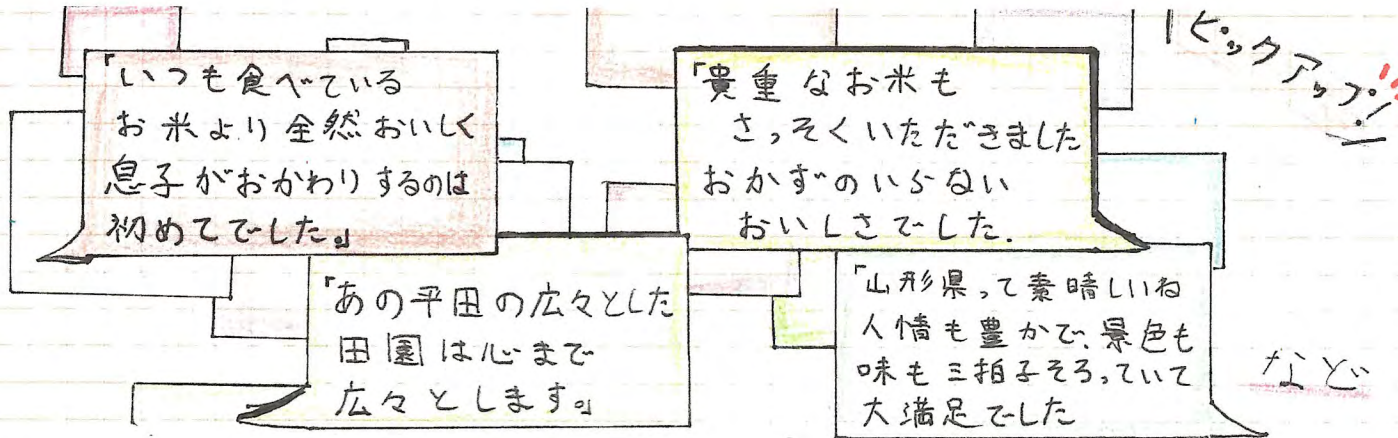 ピックアップ!!!
「いつも食べている
お米より全然おいしく
息子がおかわりするのは
初めてでした。」
「貴重なお米も
さっそくいただきました
おかずのいらない
おいしさでした.
「あの平田の広々とした
田園は心まで
広々とします。」
「山形県って素晴しいね
人情も豊かで、景色も
味も三拍子そろっていて
大満足でした
など